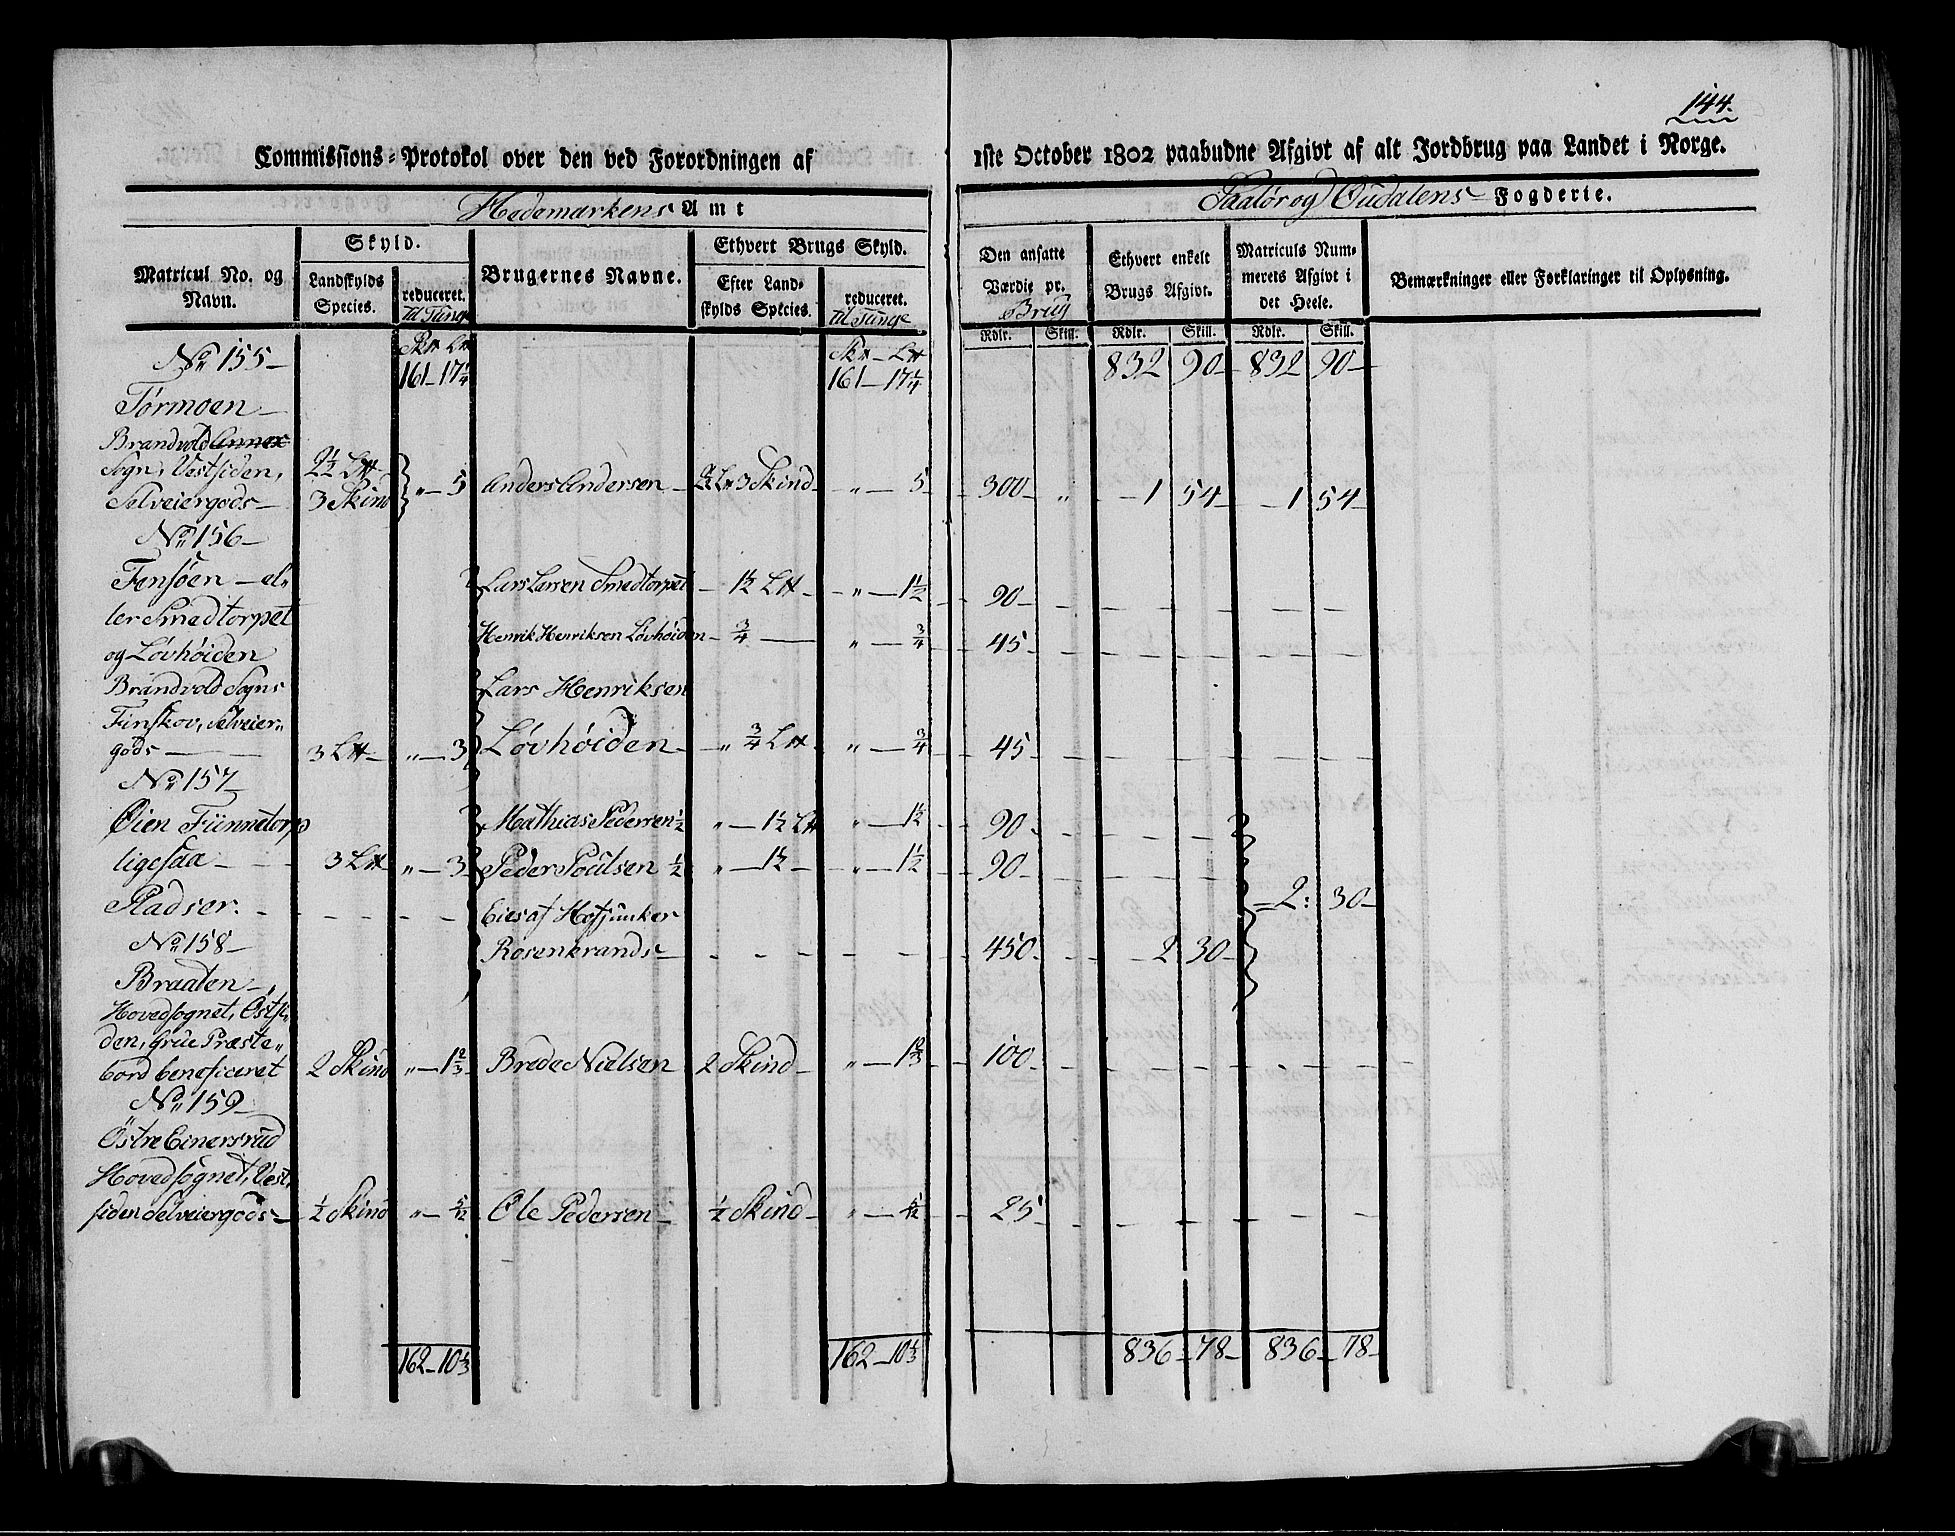 144.
Commissions-Protokol over den ved Forordningen af 1ste October 1802 paabudne Afgivt af alt Jordbrug paa Landet i Norge.
Hedemarkens Amt
og Fogderie.
Matricul No. og Navn.
Skyld.
Landskylds Species.
reduceret.
til Tunge
Brugernes Navne.
Ethvert Brugs Skyld.
Efter Landskylds Species.
reduceret.
til Tunge
Den ansatte Værdie pr.
Brug
Ethvert enkelt Brugs Afgivt.
Matriculs Nummerets Afgivt i det Heele.
Bemærkninger eller Forklaringer til Oplysning.
Rdlr. Skill. Rdlr. Skill. Rdlr. Skill.
No 155 —
161 — 17 1/4 161 — 17 1/4 832 90 — 832 90 —
Tørmoen —
Brandvold Annex
Sogn, Vestsiden, 2 1/2 L℔
Selveiergods — 3 Skind " — 5 Anders Andersen — 3 Skind — " — 5 — 300 — " — 1 54 — 1 54 —
No 156 —
el-
ler Smedtorpet Lars Larsen Smedtorpet — 1 1/2 L℔ — " — 1 1/2 — 90 —
og Løvhøiden Henrik Henriksen Løvhøiden — 3/4 — " — 3/4 — 45 —
Brandvold Sogns Lars Henriksen
Finskov, Selveier-
gods — 3 L℔ — " — 3 Løvhøiden — " 3/4 L℔ " — 3/4 — 45 —
No 157
Øien Finnetorp Mathias Pedersen 1/2 " — 1 1/2 L℔ " — 1 1/2 — 90 —
ligesaa — 3 L℔ " — 3 Peder Poulsen 1/2 " — 1 1/2 — " — 1 1/2 — 90 —
Pladser. Eies af Hofjunker = 2: 30 —
No 158 — Rosenkrands — 450 — 2 30 —
Braaten —,
Hovedsognet, Østsi-
den, Grue Præste-
bord beneficeret 2 Skind " — 1 2/3 — Brede Nielsen 2 Skind — " — 1 2/3 — 100 —
No 159 —
Østre Einersrud
Hovedsognet, Vest-
siden Selveiergods — 1/2 Skind " — 5/12 Ole Pedersen — 1/2 Skind — " — 5/12 — 25 —
162 — 10 1/3 162 — 10 1/3 836 — 78 — 836 — 78 —